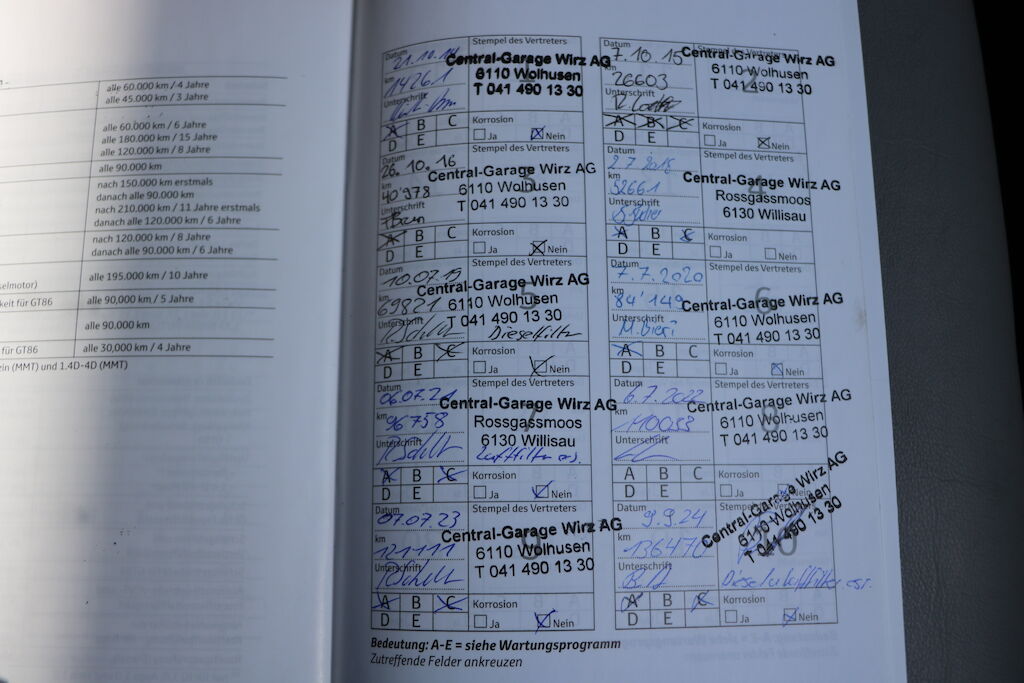 alle 60.000 km / 4 Jahre
alle 45.000 km / 3 Jahre
alle 60.000 km / 6 Jahre
alle 180.000 km / 15 Jahre
alle 120.000 km / 8 Jahre
alle 90.000 km
nach 150.000 km erstmals
danach alle 90.000 km
nach 210.000 km / 11 Jahre erstmals
danach alle 120.000 km / 6 Jahre
nach 120.000 km / 8 Jahre
danach alle 90.000 km / 6 Jahre
elmotor)
alle 195.000 km / 10 Jahre
keit für GT86
alle 90,000 km / 5 Jahre
alle 90.000 km
für GT86
alle 30,000 km / 4 Jahre
zin (MMT) und 1.4D-4D (MMT)
Datum
Stempel des Vertreters
21.10.14
Central-Garage Wirz AG
6110 Wolhusen
T 041 490 13 30
km
14261
1
Unterschrift
A B C
D E
Korrosion
Ja Nein
Datum
Stempel des Vertreters
7.10.15
Central-Garage Wirz AG
6110 Wolhusen
T 041 490 13 30
km
26603
2
Unterschrift
A B C
D E
Korrosion
Ja Nein
Datum
Stempel des Vertreters
26.10.16
Central-Garage Wirz AG
6110 Wolhusen
T 041 490 13 30
km
40'978
3
Unterschrift
A B C
D E
Korrosion
Ja Nein
Datum
Stempel des Vertreters
Central-Garage Wirz AG
Rossgassmoos
6130 Willisau
km
52661
4
Unterschrift
A B C
D E
Korrosion
Ja Nein
Datum
Stempel des Vertreters
10.07.19
Central-Garage Wirz AG
6110 Wolhusen
T 041 490 13 30
km
69821
5
Unterschrift
Dieselfilter
A B C
D E
Korrosion
Ja Nein
Datum
Stempel des Vertreters
7.7.2020
Central-Garage Wirz AG
6110 Wolhusen
T 041 490 13 30
km
84'149
6
Unterschrift
M. Bieri
A B C
D E
Korrosion
Ja Nein
Datum
Stempel des Vertreters
06.07.21
Central-Garage Wirz AG
Rossgassmoos
6130 Willisau
km
96758
7
Unterschrift
Luftfilter ers.
A B C
D E
Korrosion
Ja Nein
Datum
Stempel des Vertreters
6.7.2022
Central-Garage Wirz AG
6110 Wolhusen
T 041 490 13 30
km
110033
8
Unterschrift
A B C
D E
Korrosion
Ja Nein
Datum
Stempel des Vertreters
07.07.23
Central-Garage Wirz AG
6110 Wolhusen
T 041 490 13 30
km
121111
9
Unterschrift
A B C
D E
Korrosion
Ja Nein
Datum
9.9.24
Central-Garage Wirz AG
6110 Wolhusen
T 041 490 13 30
km
136470
10
Unterschrift
A B C
D E
Korrosion
Ja Nein
Bedeutung: A-E = siehe Wartungsprogramm
Zutreffende Felder ankreuzen